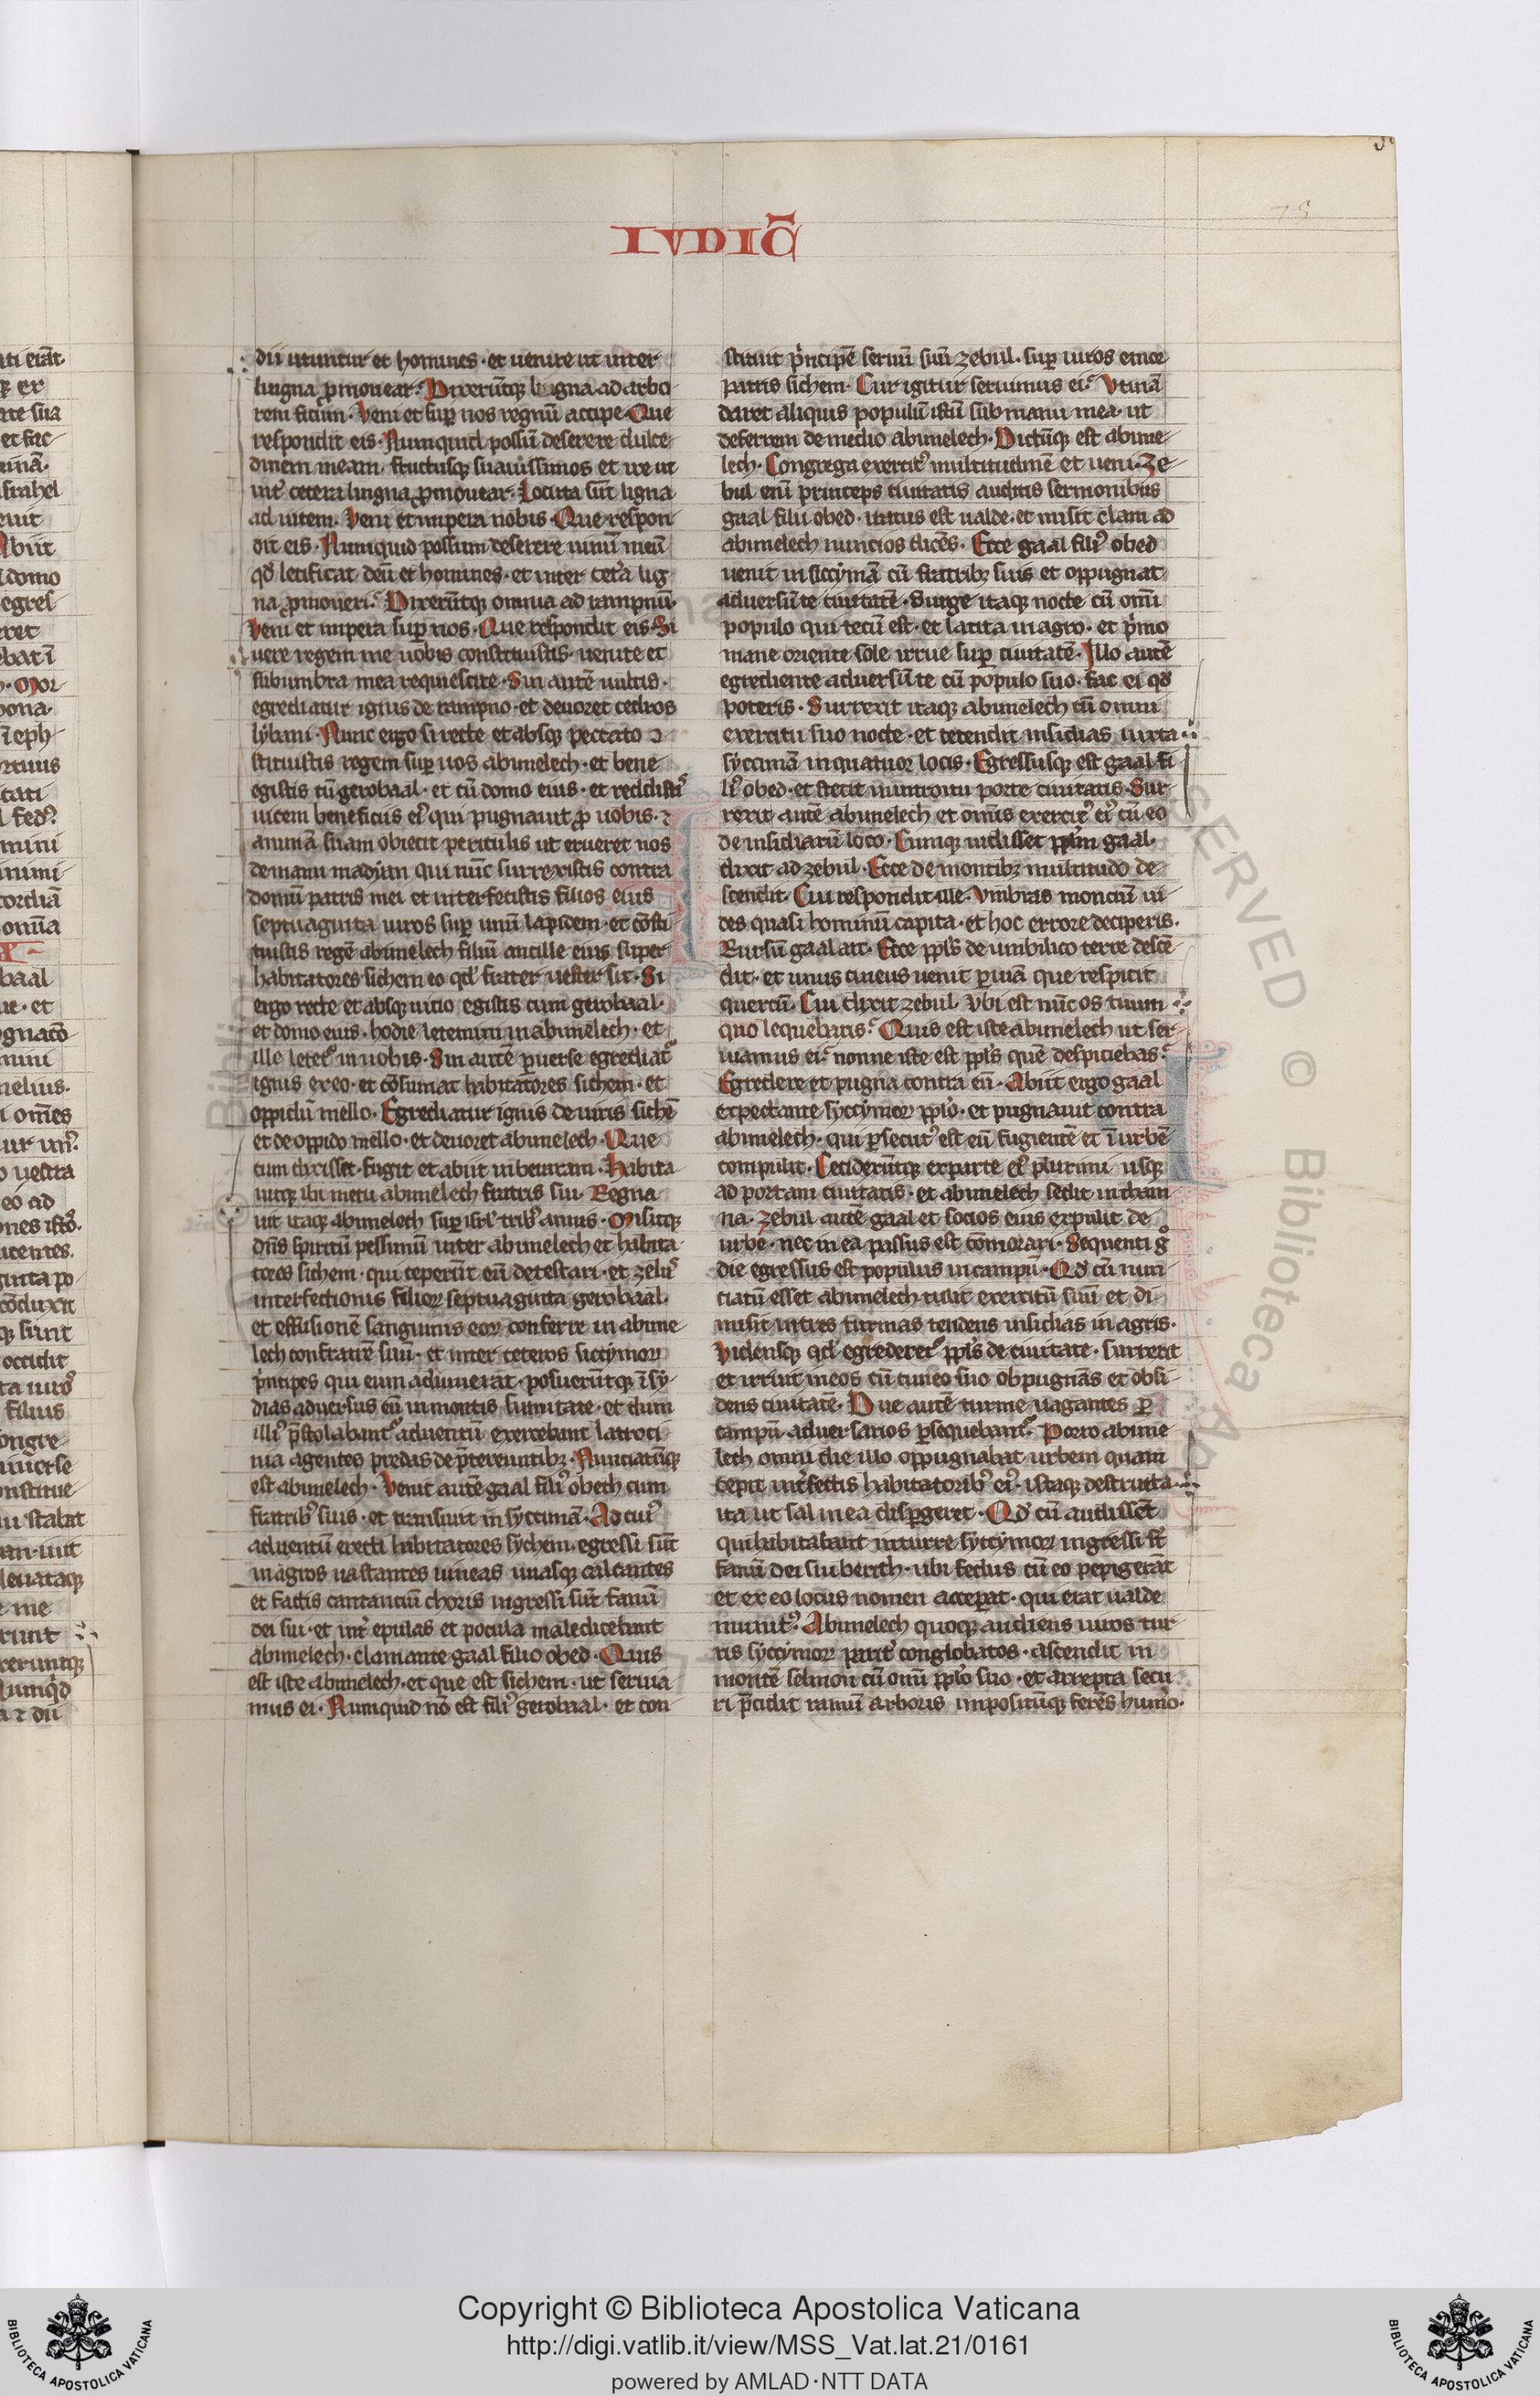 IVDIC̄
dii utuntur et homines · et uenire ut inter
lingna p̄mouear · Dixerūtq; lingna ad arbo
rem ficum · Veni et sup̄ nos regnū accipe · Que
respondit eis · Numquid possū deserere dulce
dinem meam · fructusq; suauissimos et ire ut
int̄ cetera lingna p̄mouear · Locuta sūt ligna
ad uitem · Veni et impera nobis · Que respon
dit eis · Numquid possum deserere uinū meū
qd̄ letificat deū et homines · et inter cet̄a lig
na p̄moueri · Dixerūtq; omnia ad rampnū ·
Veni et impera sup̄ nos · Que respondit eis · Si
uere regem me uobis constituistis · uenite et
sub umbra mea requiescite · Sin autē uultis ·
egrediatur ignis de rampno · et deuoret cedros
lybani · Nunc ergo si recte et absq; peccato ↄ
stituistis regem sup̄ uos abimelech · et bene
egistis cū gerobaal · et cū domo eius · et reddidisti
uicem beneficiis ei᾽ qui pugnauit p̄ uobis · ⁊
animā suam obiecit periculis ut erueret uos
de manu madyan qui nūc surrexistis contra
domū patris mei et interfecistis filios eius
septuaginta uiros sup̄ unū lapidem · et cōsti
tuistis regē abimelech filiū ancille eius super
habitatores sichem eo qd̄ frater uester sit · Si
ergo recte et absq; uicio egistis cum gerobaal ·
et domo eius · hodie letemini in abimelech · et
ille letet᾽ in uobis · Sin autē p̄uerse egrediat᾽
ignis ex eo · et cōsumat habitatores sichem · et
oppidū mello · Egrediatur ignis de uiris sichē
et de oppido mello · et deuoret abimelech · Que
cum dixisset · fugit et abiit in beraram · Habita
uitq; ibi metu abimelech fratris sui · Regna
uit itaq; abimelech sup̄ isrl̄ trib᾽ annis · Misitq;
dn̄s spiritū pessimū inter abimelech et habita
tores sichem · qui ceperūt eū detestari · et zelū᾽
interfectionis filioꝝ septuaginta gerobaal ·
et effusionē sanguinis eoꝝ conferre in abime
lech confratrē suū · et inter ceteros siccymoꝝ
p̄ncipes qui eum adiuuerat · posuerūtq; ī sy
dias aduersus eū in montis sumitate · et dum
illi᾽ p̄stolabant᾽ aduentū exercebant latroci
nia agentes predas de p̄tereuntibꝫ · Nunciatūq;
est abimelech · Venit autē gaal fili᾽ obeth cum
fratrib᾽ suis · et transiuit in syccimā · Ad cui᾽
aduentū erecti habitatores sychem · egressi sūt
in agros uastantes uineas uuasq; calcantes
et factis cantanciū choris ingressi sūt fanū
dei sui · et int̄ epulas et pocula maledicebant
abimelech · clamante gaal filio obed · Quis
est iste abimelech · et que est sichem · ut seruia
mus ei · Numquid nō est fili᾽ gerobaal · et con
stituit p̄ncipē seruū suū zebul · sup̄ uiros emor
patris sichem · Cur igitur seruimus ei · Vtinā
daret aliquis populū istū sub manu mea · ut
deferrem de medio abimelech · Dictūq; est abime
lech · Congrega exercit᾽ multitudinē et ueni · Ze
bul eni princeps ciuitatis auditis sermonibus
gaal filii obed · iratus est ualde · et misit clam ad
abimelech nuncios dicēs · Ecce gaal fili᾽ obed
uenit in siccymā cū fratribꝫ suis et oppugnat
aduersū te ciuitatē · Surge itaq; nocte cū omī
populo qui tecū est · et latita in agro · et p̄mo
mane oriente sole irrue sup̄ ciuitatē · Illo autē
egrediente aduersū te cū populo suo · fac ei qd̄
poteris · Surrexit itaq; abimelech cū omni
exercitu suo nocte · et tetendit insidias iuxta
syccimā in quatuor locis · Egressusq; est gaal fi
li᾽ obed · et stetit in introitu porte ciuitatis · Sur
rexit autē abimelech et omīs exercit᾽ ei᾽ cū eo
de insidiarū loco · Cumq; uidisset pp̄lm gaal ·
dixit ad zebul · Ecce de montibꝫ multitudo de
scendit · Cui respondit ille · Vmbras monciū ui
des quasi hominū capita · et hoc errore deciperis ·
Rursū gaal ait · Ecce pp̄ls de umbilico terre descē
dit · et unus cuneus uenit p̄ uiā que respicit
quercū · Cui dixit zebul · Vbi est nūc os tuum
quo lequebaris · Quis est iste abimelech ut ser
uiamus ei · nonne iste est pp̄ls quē despiciebas
Egredere et pugna contra eū · Abiit ergo gaal
expectante syccymoꝝ pp̄lo · et pugnauit contra
abimelech · qui p̄secut᾽ est eū fugientē et ī urbē
compulit · Cecideruntq; ex parte ei᾽ plurimi usq;
ad portam ciuitatis · et abimelech sedit in tham
na · Zebul autē gaal et socios eius expulit de
urbe · nec in ea passus est cōmorari · Sequenti g°
die egressus est populus in campū · Qd̄ cū nun
ciatū esset abimelech · tulit exercitū suū et di
uisit in tres turmas tendens insidias in agris ·
Vidensq; qd̄ egrederet᾽ pp̄ls de ciuitate · surrexit
et irriuit in eos cū cuneo suo obpugnās et obsi
dens ciuitatē · Due autē turme uagantes p̄
campū · aduersarios p̄sequebant᾽ · Porro abime
lech omni die illo oppugnabat urbem quam
cepit int̄fectis habitatorib᾽ ei᾽ · istaq; destructa
ita ut sal in ea disp̄geret · Qd̄ cū audissēt
qui habitabant in turre syccymoꝝ ingressi sūt
fanū dei sui berith · ubi fedus cū eo pepigerāt
et ex eo locus nomen acceperat · qui erat ualde
munit᾽ · Abimelech quoq; audiens uiros tur
ris syccymoꝝ parit᾽ conglobatos · ascendit in
montē selmon cū omī pp̄lo suo · et arrepta secu
ri p̄cidit ramū arboris impositūq; ferēs humo ·
Copyright © Biblioteca Apostolica Vaticana
http://digi.vatlib.it/view/MSS_Vat.lat.21/0161
powered by AMLAD·NTT DATA